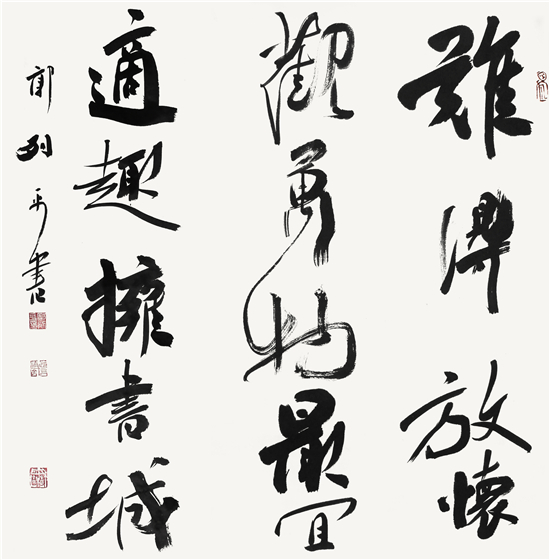 難得放懷
觀萬物最宜
適趣擁書城
郭列平書